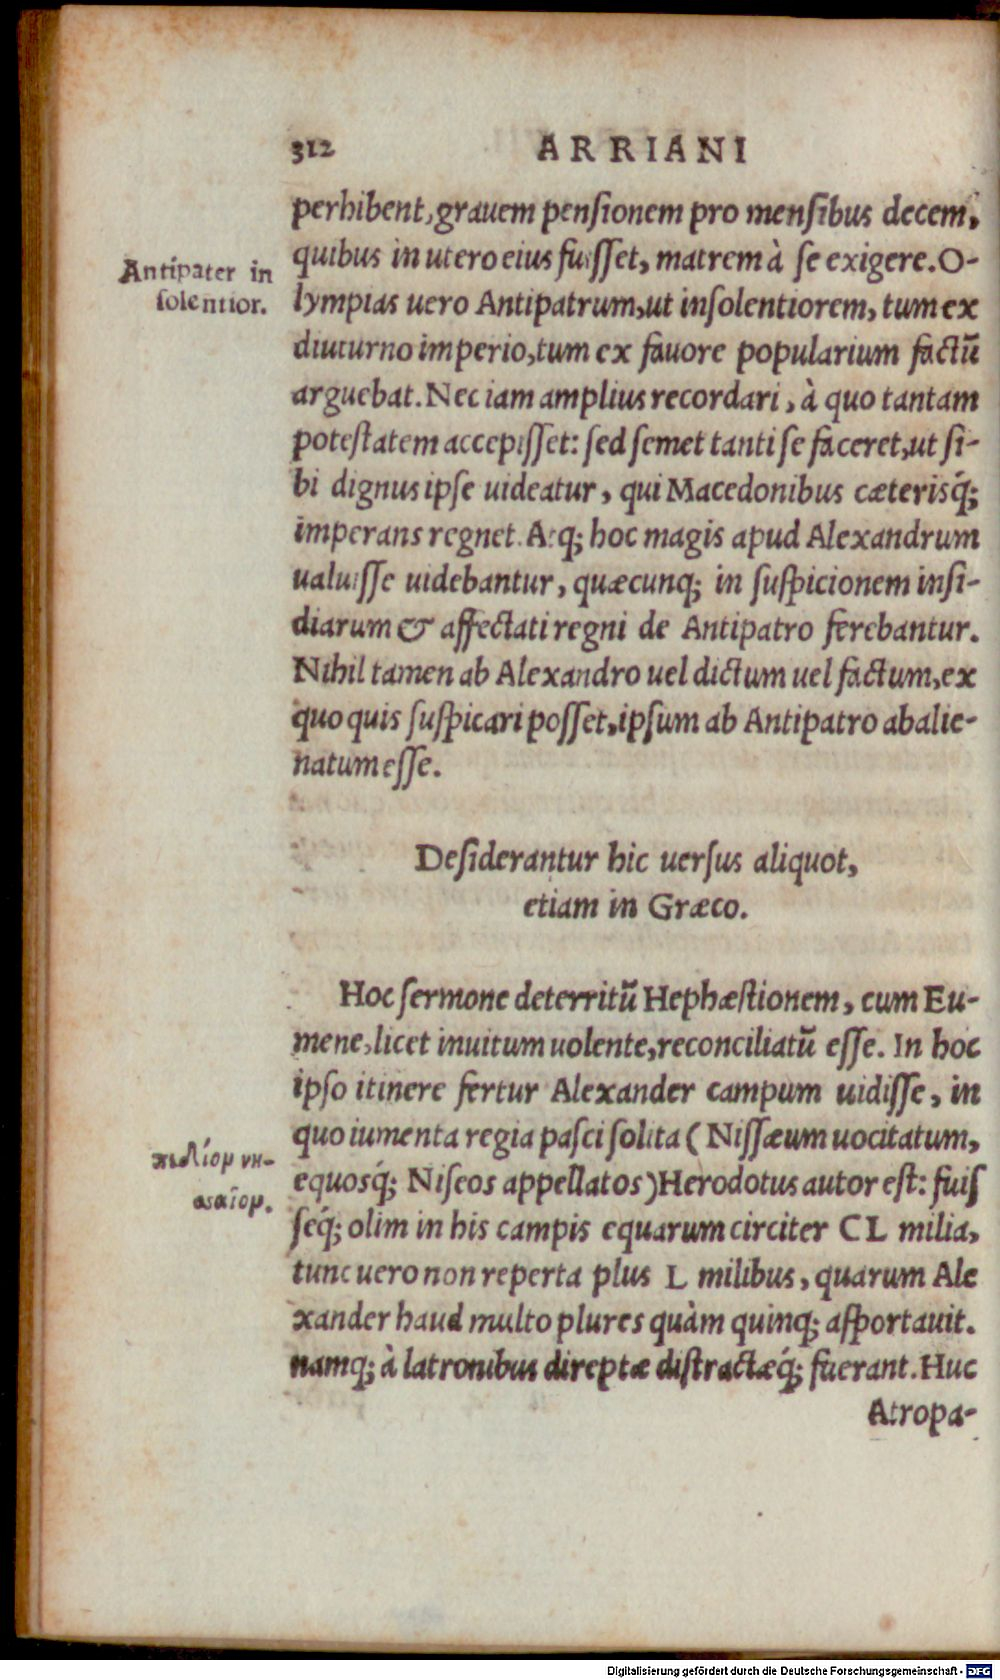 312 ARRIANI
perhibent, grauem pensionem pro mensibus decem,
quibus in utero eius fuisset, matrem à se exigere. O-
Antipater in
solentior.
lympias uero Antipatrum, ut insolentiorem, tum ex
diuturno imperio, tum ex fauore popularium factũ
arguebat. Nec iam amplius recordari, à quo tantam
potestatem accepisset: sed semet tanti se faceret, ut si-
bi dignus ipse uideatur, qui Macedonibus cæterisq́;
imperans regnet. Atq; hoc magis apud Alexandrum
ualuisse uidebantur, quæcunq; in suspicionem insi-
diarum & affectati regni de Antipatro ferebantur.
Nihil tamen ab Alexandro uel dictum uel factum, ex
quo quis suspicari posset, ipsum ab Antipatro abalie-
natum esse.
Desiderantur hic uersus aliquot,
etiam in Græco.
Hoc sermone deterritũ Hephæstionem, cum Eu-
mene, licet inuitum uolente, reconciliatũ esse. In hoc
ipso itinere fertur Alexander campum uidisse, in
quo iumenta regia pasci solita (Nissæum uocitatum,
πεδίον νη-
σαῖον.
equosq́; Niseos appellatos) Herodotus autor est: fuis
seq́; olim in his campis equarum circiter CL milia,
tunc uero non reperta plus L milibus, quarum Ale
xander haud multo plures quàm quinq; asportauit.
namq; à latronibus direptæ distractæq́; fuerant. Huc
Atropa-
Digitalisierung gefördert durch die Deutsche Forschungsgemeinschaft - DFG